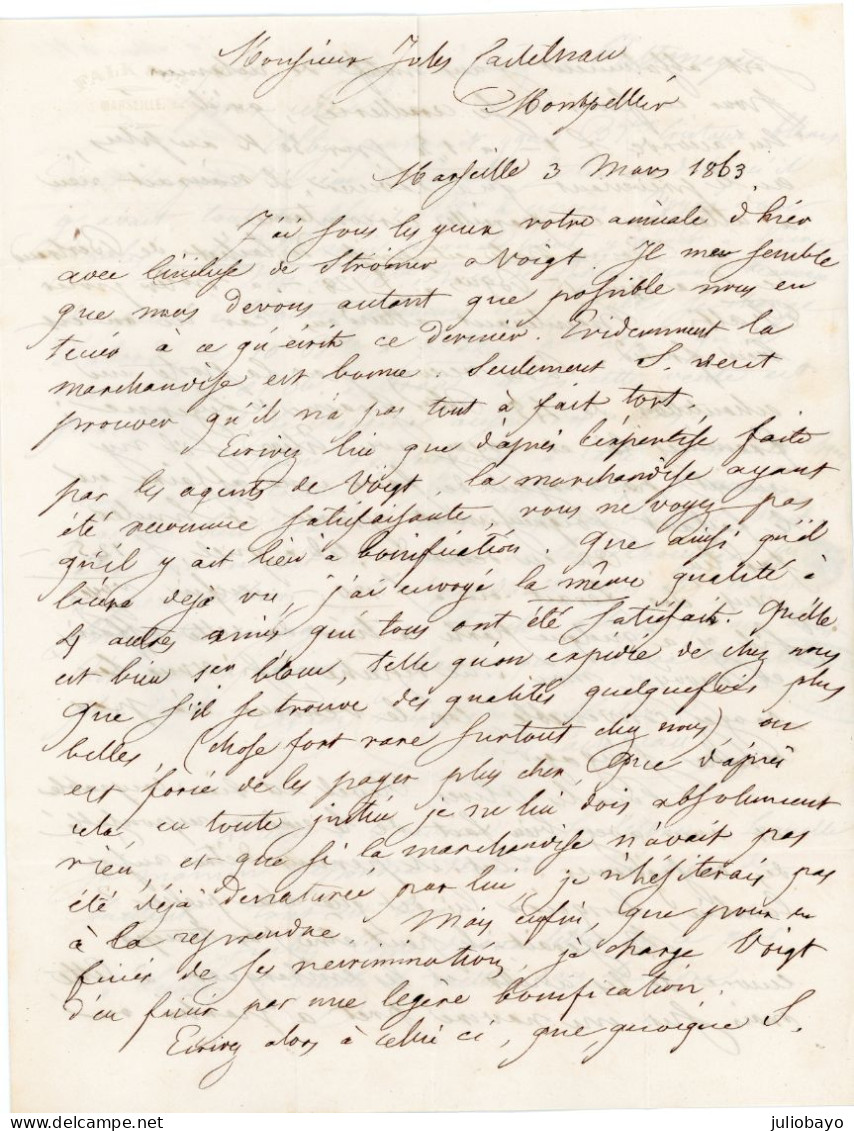 Monsieur Jules Castelnau
Montpellier
Marseille 3 Mars 1863
J'ai sous les yeux votre amicale d'hier
avec l'incluse de Strömer a Voigt. Il me semble
que nous devons autant que possible nous en
tenir à ce qu'écrit ce dernier. Evidemment la
marchandise est bonne. Seulement S. veut
prouver qu'il n'a pas tout à fait tort.
Ecrivez lui que d'après l'expertise faite
par les agents de Voigt, la marchandise ayant
été reconnue satisfaisante, vous ne voyez pas
qu'il y ait lieu a bonification. Que ainsi qu'il
l'aura dejà vu, j'ai envoyé la même qualité à
4 autres amis qui tous ont été satisfait. Qu'elle
est bien 1er blanc, telle qu'on expédie de chez nous
Que s'il se trouve des qualités quelquefois plus
belles, (chose fort rare surtout chez nous), on
est forcé de les payer plus cher, Que d'après
cela en toute justice je ne lui dois absolument
rien, et que si la marchandise n'avait pas
été déjà denaturée par lui, je n'hésiterais pas
à la reprendre. Mais enfin, que pour en
finir de ses recriminations, je charge Voigt
d'en finir par une légère bonification.
Ecrivez alors à celui ci, que, quoique S.
juliobayo